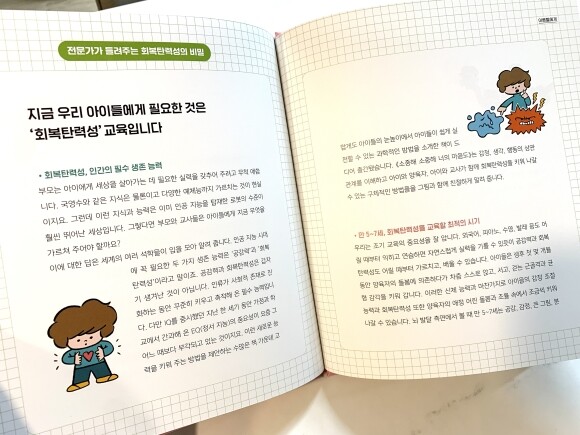 전문가가 들려주는 회복탄력성의 비밀
지금 우리 아이들에게 필요한 것은
‘회복탄력성’ 교육입니다
• 회복탄력성, 인간의 필수 생존 능력
부모는 아이에게 세상을 살아가는 데 필요한 실력을 갖춰 주려고 무척 애씁
니다. 국영수와 같은 지식은 물론이고 다양한 예체능까지 가르치는 것이 현실
이지요. 그런데 이런 지식과 능력은 이미 인공 지능을 탑재한 로봇의 수준이
훨씬 뛰어난 세상입니다. 그렇다면 부모와 교사들은 아이들에게 지금 무엇을
가르쳐 주어야 할까요?
이에 대한 답은 세계의 여러 석학들이 입을 모아 말해 줍니다. 인공 지능 시대
에 꼭 필요한 두 가지 생존 능력은 ‘공감력’과 ‘회복
탄력성’이라고 말이죠. 공감력과 회복탄력성은 갑자
기 생겨난 것이 아닙니다. 인류가 사회적 존재로 진
화하는 동안 꾸준히 키우고 축적해 온 필수 능력입니
다. 다만 IQ를 중시했던 지난 한 세기 동안 가정과 학
교에서 간과해 온 EQ(정서 지능)의 중요성이 요즘 그
어느 때보다 부각되고 있는 것이지요. 이런 새로운 능
력을 키워 주는 방법을 제안하는 수많은 책 가운데 고
이렇볼까요
쉽게도 아이들의 눈높이에서 아이들이 쉽게 실
천할 수 있는 과학적인 방법을 소개한 책이 드
디어 출간됐습니다. 《소중해 소중해 너의 마음도》는 감정, 생각, 행동의 상관
관계를 이해하고 아이와 양육자, 아이와 교사가 함께 회복탄력성을 키워 나갈
수 있는 구체적인 방법들을 그림과 함께 친절하게 알려 줍니다.
• 만 5~7세, 회복탄력성을 교육할 최적의 시기
우리는 조기 교육의 중요성을 잘 압니다. 외국어, 피아노, 수영, 발레 등도 어
릴 때부터 익히고 연습하면 자연스럽게 실력을 기를 수 있듯이 공감력과 회복
탄력성도 어릴 때부터 가르치고, 배울 수 있습니다. 아이들은 생후 첫 몇 개월
동안 양육자의 돌봄에 의존하다가 차츰 스스로 앉고, 서고, 걷는 근골격과 균
형 감각을 키워 갑니다. 이러한 신체 능력과 마찬가지로 아이들의 감정 조절
능력과 회복탄력성 또한 양육자의 애정 어린 돌봄과 조율 속에서 조금씩 키워
나갈 수 있습니다. 뇌 발달 측면에서 볼 때 만 5~7세는 공감, 감정, 큰 그림, 분